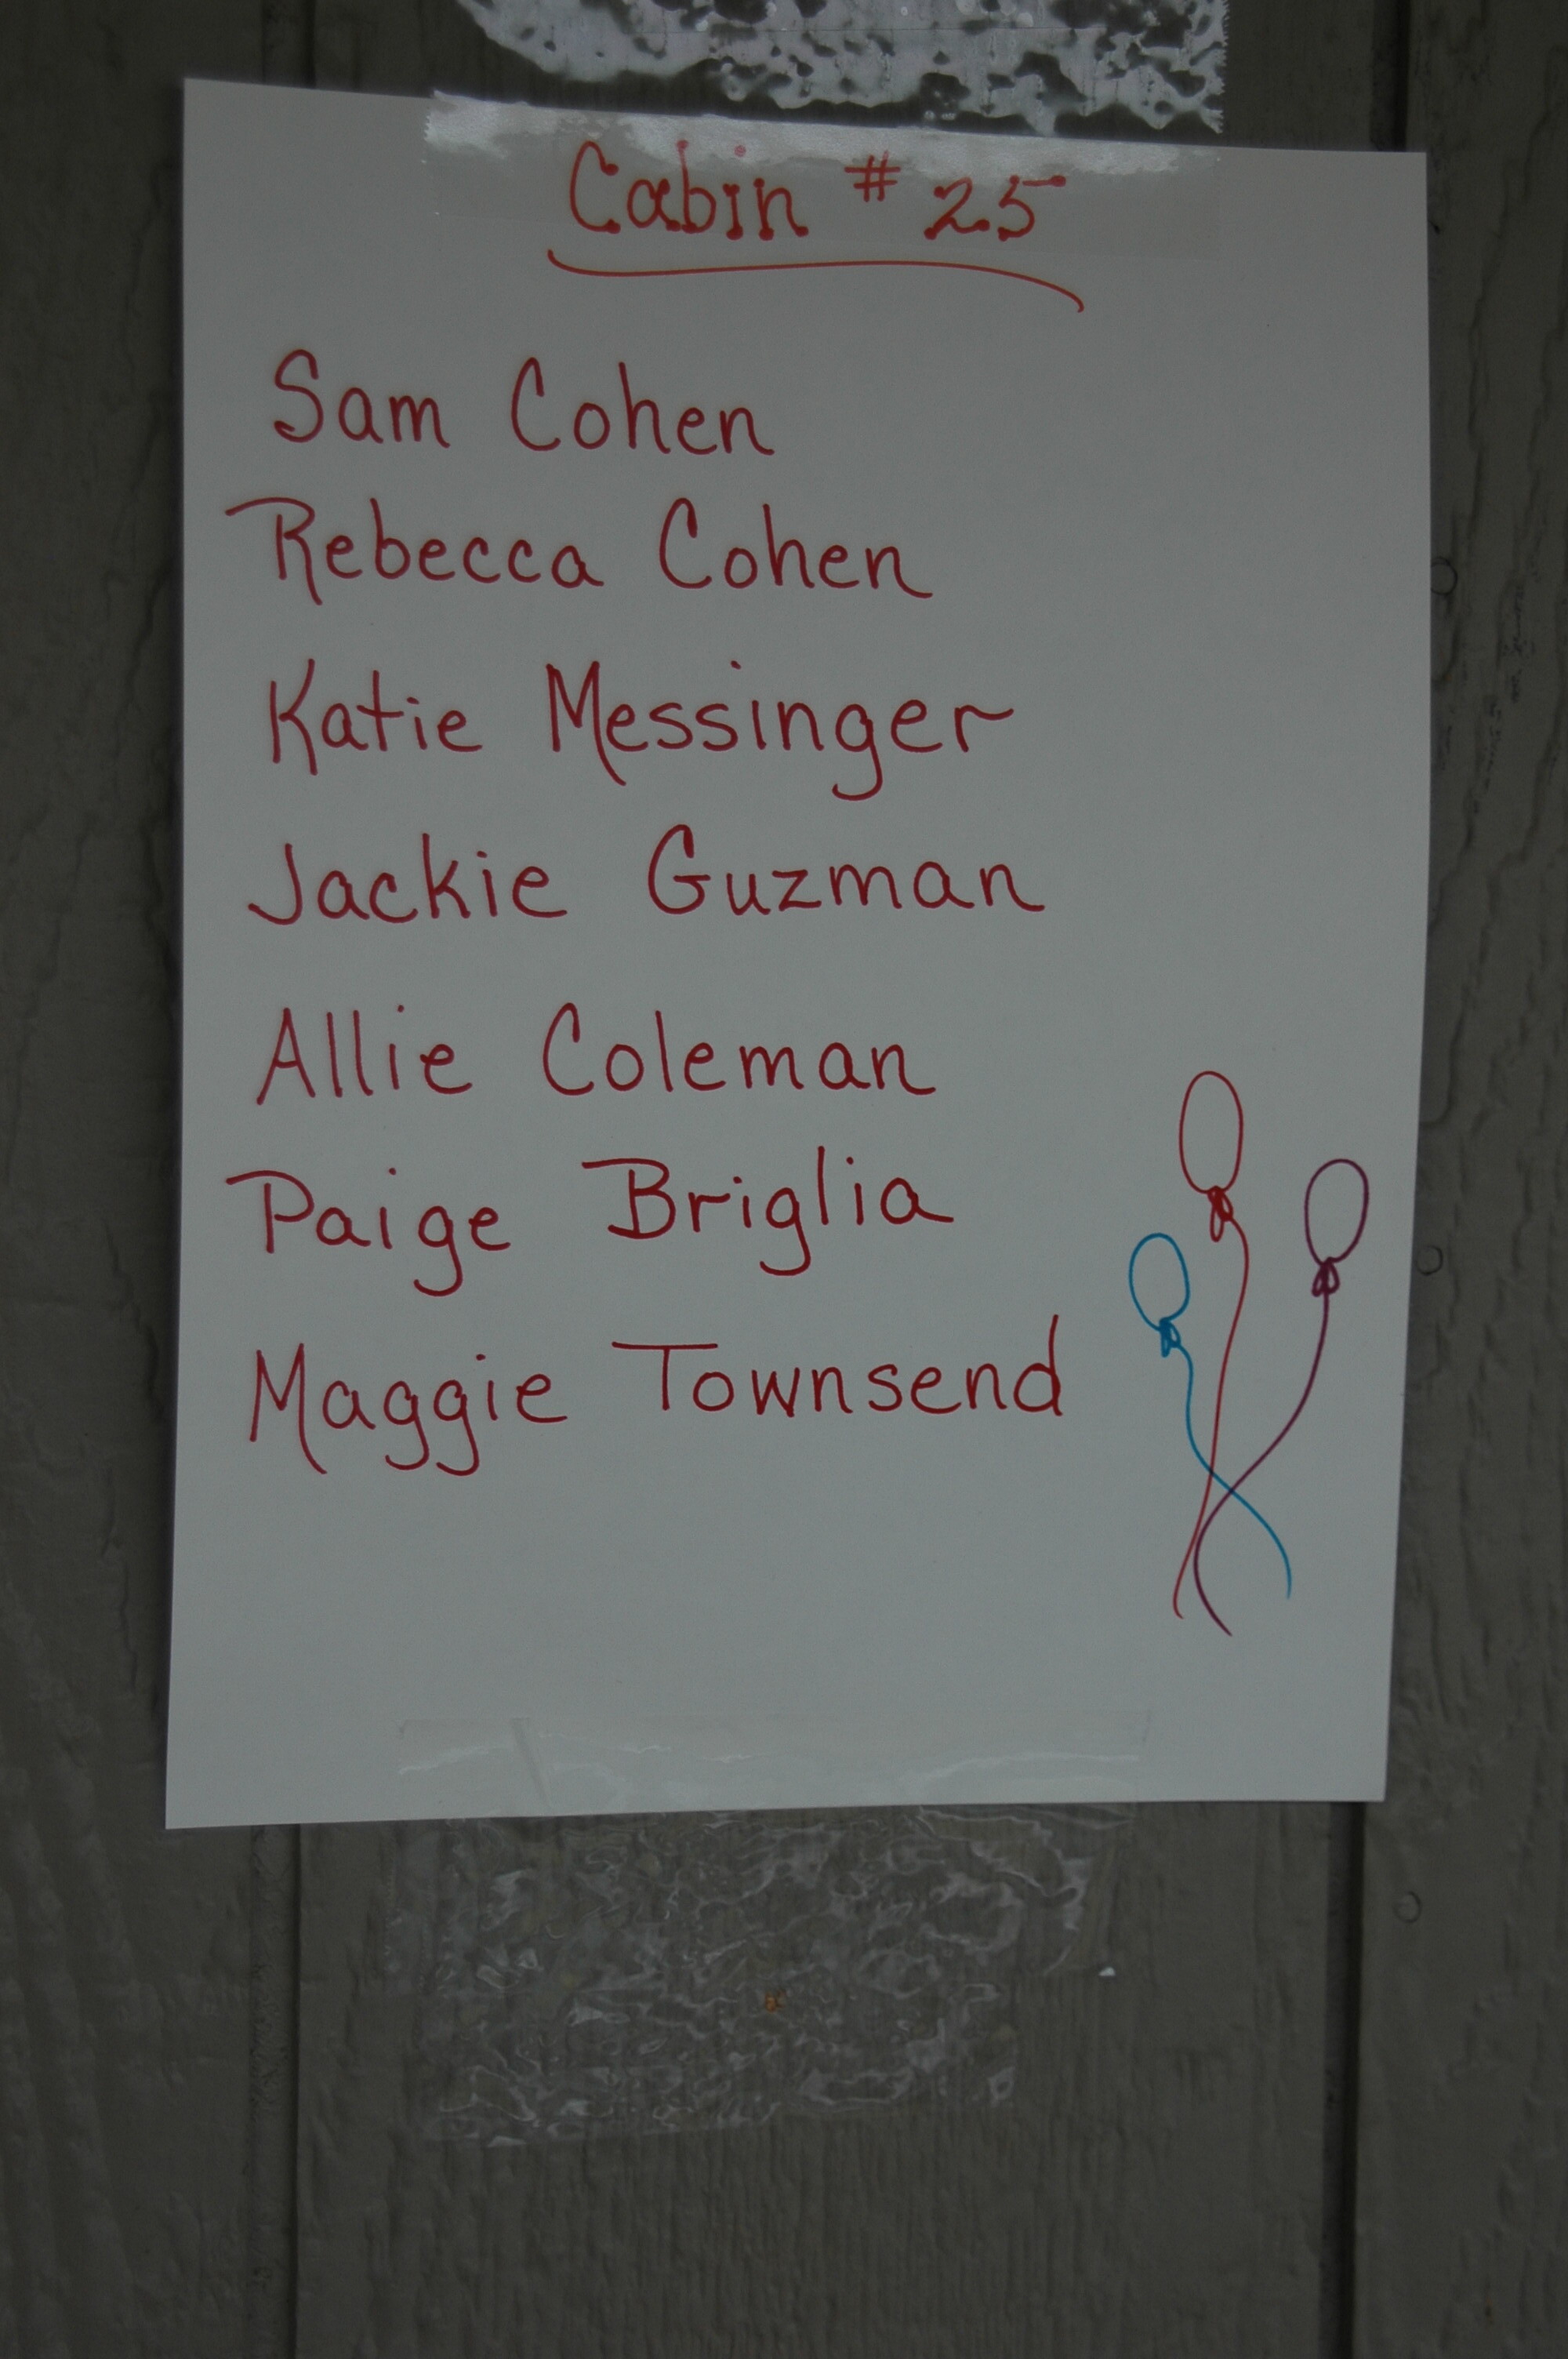 Cabin # 25
Sam Cohen
Rebecca Cohen
Katie Messinger
Jackie Guzman
Allie Coleman
Paige Briglia
Maggie Townsend